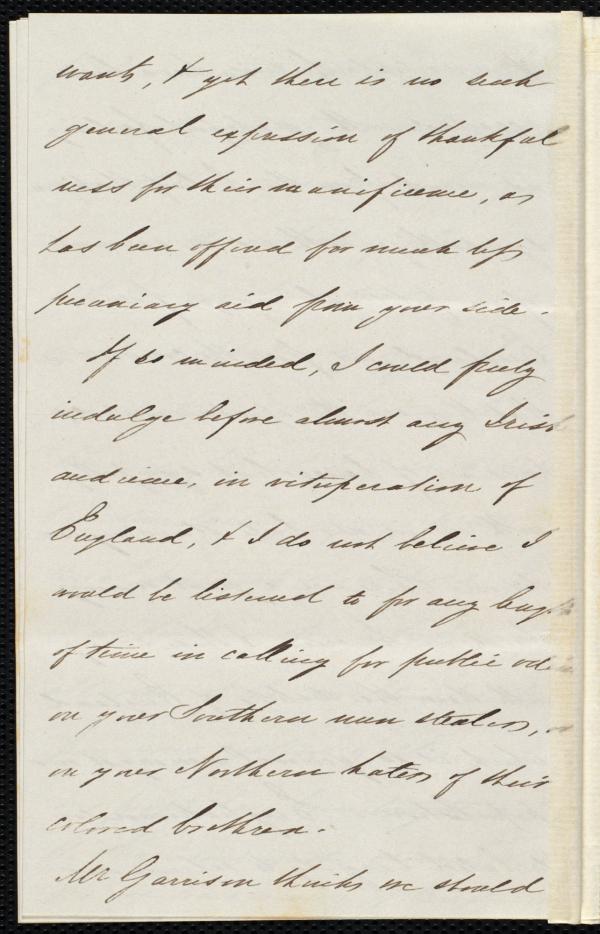 wants, & yet there is no such
general expression of thankful
ness for their munificence, as
has been offered for much less
pecuniary aid from your side.
If so minded, I could freely
indulge before almost any Irish
audience, in vituperation of
England, & I do not believe I
would be listened to for any length
of time in calling for public odium
on your Southern men stealers, or
on your Northern haters of their
colored brethren.
Mr Garrison thinks we should